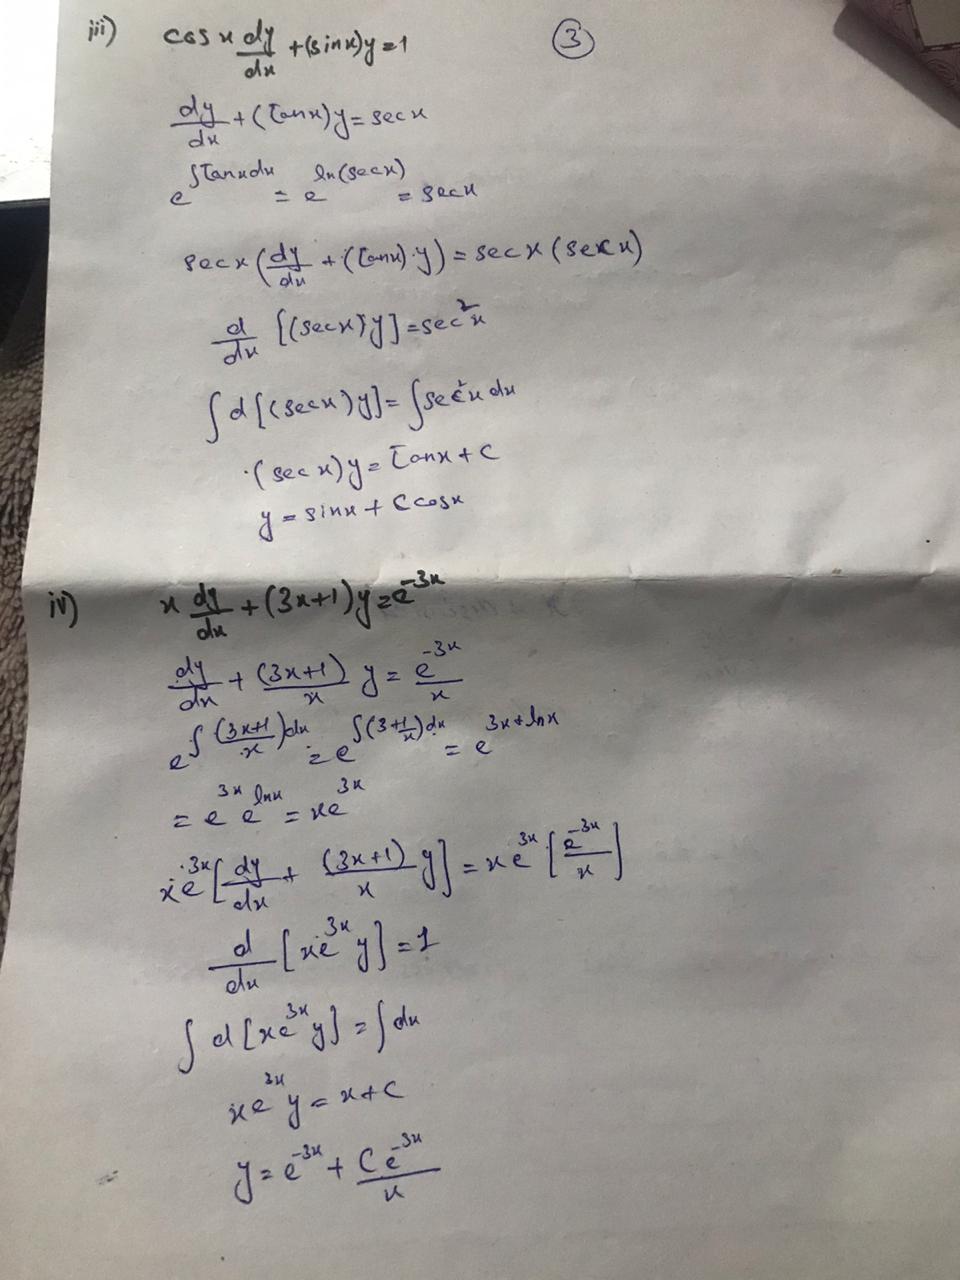 iii) cos x dy/dx + (sin x)y = 1
③
dy/dx + (Tan x)y = sec x
e^∫Tan x dx = e^ln(sec x) = sec x
sec x (dy/dx + (Tan x) y) = sec x (sec x)
d/dx [(sec x) y] = sec²x
∫d[(sec x) y] = ∫sec²x dx
(sec x) y = Tan x + C
y = sin x + C cos x
iv) x dy/dx + (3x+1)y = e^-3x
dy/dx + (3x+1)/x y = e^-3x/x
e^∫((3x+1)/x)dx = e^∫(3+1/x)dx = e^3x+ln x
= e^3x e^ln x = xe^3x
xe^3x [dy/dx + (3x+1)/x y] = xe^3x [e^-3x/x]
d/dx [xe^3x y] = 1
∫d[xe^3x y] = ∫dx
xe^3x y = x + C
y = e^-3x + Ce^-3x/x